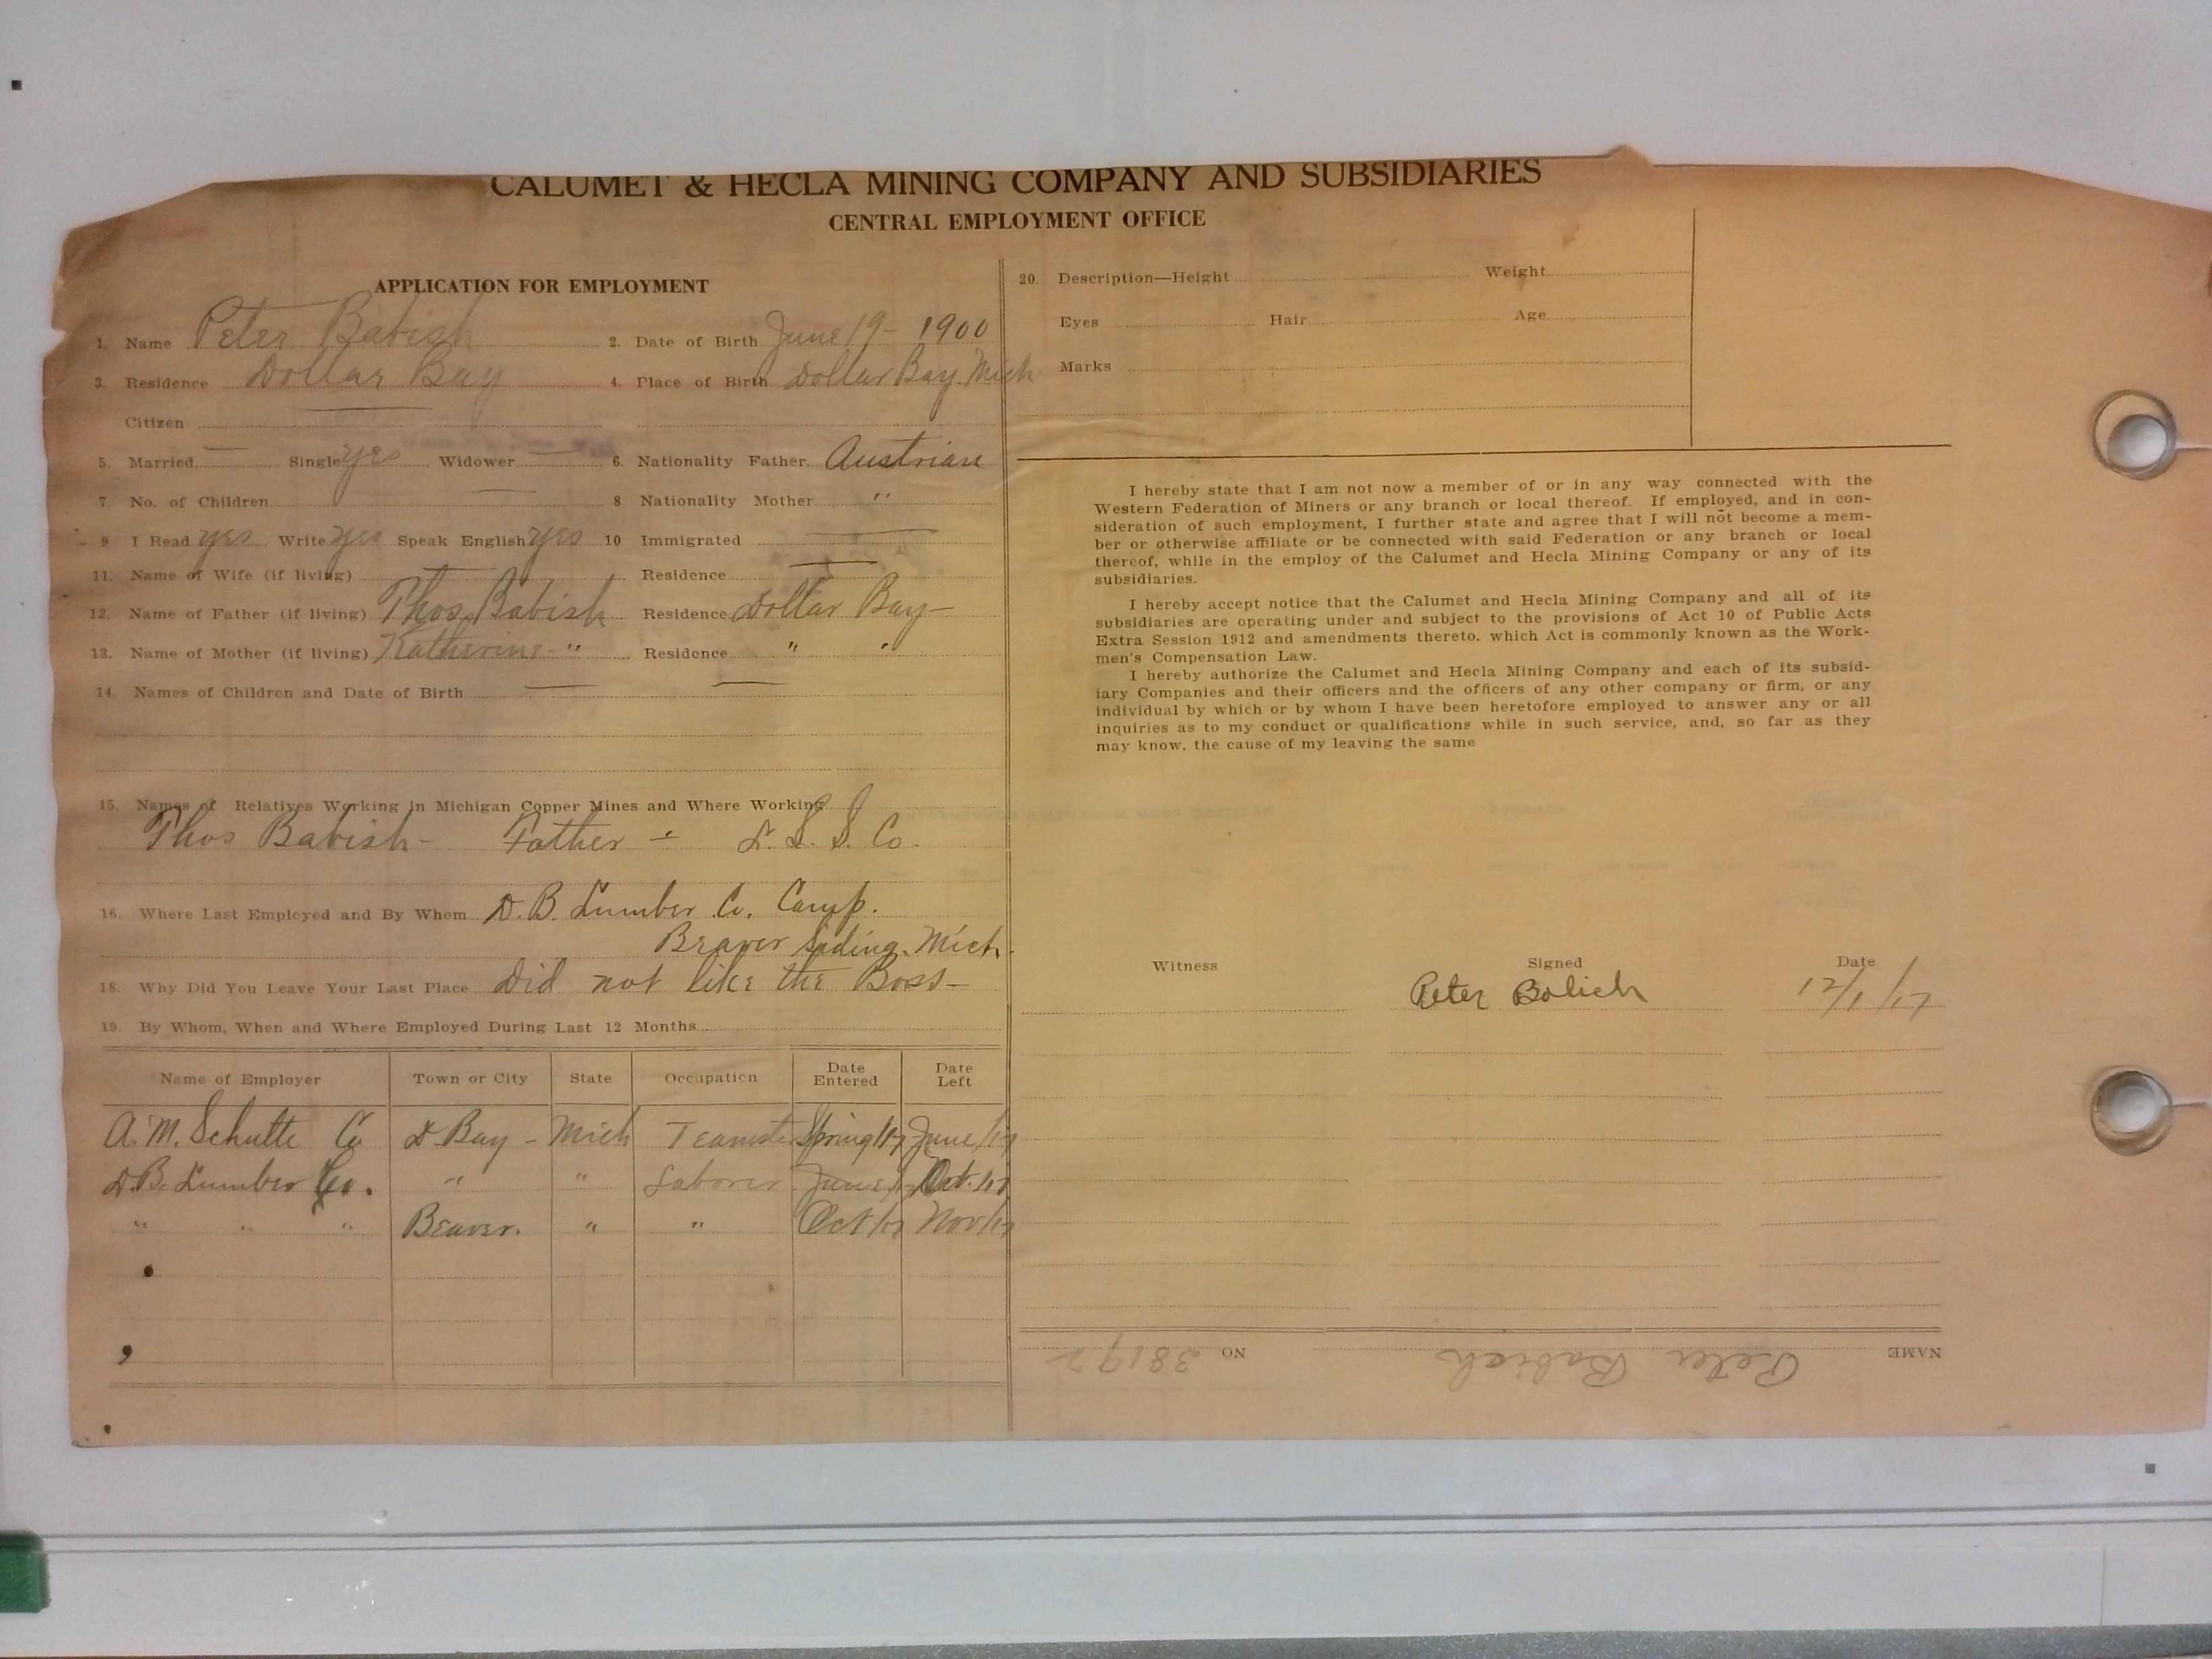 CALUMET & HECLA MINING COMPANY AND SUBSIDIARIES
CENTRAL EMPLOYMENT OFFICE
APPLICATION FOR EMPLOYMENT
1. Name Peter Babish 2. Date of Birth June 19 - 1900
3. Residence Dollar Bay 4. Place of Birth Dollar Bay. Mich
Citizen
5. Married Single yes Widower 6. Nationality Father Austrian
7. No. of Children 8 Nationality Mother "
9 I Read yes Write yes Speak English yes 10 Immigrated
11. Name of Wife (if living) Residence
12. Name of Father (if living) Thos Babish Residence Dollar Bay -
13. Name of Mother (if living) Katherine - " Residence " "
14. Names of Children and Date of Birth
15. Names of Relatives Working in Michigan Copper Mines and Where Working
Thos Babish - Father - L. S. S. Co.
16. Where Last Employed and By Whom D. B. Lumber Co. Camp.
Beaver Siding. Mich.
18. Why Did You Leave Your Last Place Did not like the Boss -
19. By Whom, When and Where Employed During Last 12 Months
Name of Employer Town or City State Occupation Date Entered Date Left
A. M. Schulte Co D. Bay - Mich Teamster Spring/17 June/17
D. B. Lumber Co. " " Laborer June/17 Oct./17
" " " Beaver. " " Oct/17 Nov/17
20. Description—Height Weight
Eyes Hair Age
Marks
I hereby state that I am not now a member of or in any way connected with the
Western Federation of Miners or any branch or local thereof. If employed, and in con-
sideration of such employment, I further state and agree that I will not become a mem-
ber or otherwise affiliate or be connected with said Federation or any branch or local
thereof, while in the employ of the Calumet and Hecla Mining Company or any of its
subsidiaries.
I hereby accept notice that the Calumet and Hecla Mining Company and all of its
subsidiaries are operating under and subject to the provisions of Act 10 of Public Acts
Extra Session 1912 and amendments thereto. which Act is commonly known as the Work-
men's Compensation Law.
I hereby authorize the Calumet and Hecla Mining Company and each of its subsid-
iary Companies and their officers and the officers of any other company or firm, or any
individual by which or by whom I have been heretofore employed to answer any or all
inquiries as to my conduct or qualifications while in such service, and, so far as they
may know, the cause of my leaving the same
Witness Signed Date
Peter Bolich 12/1/17
NAME Peter Babish NO 38192